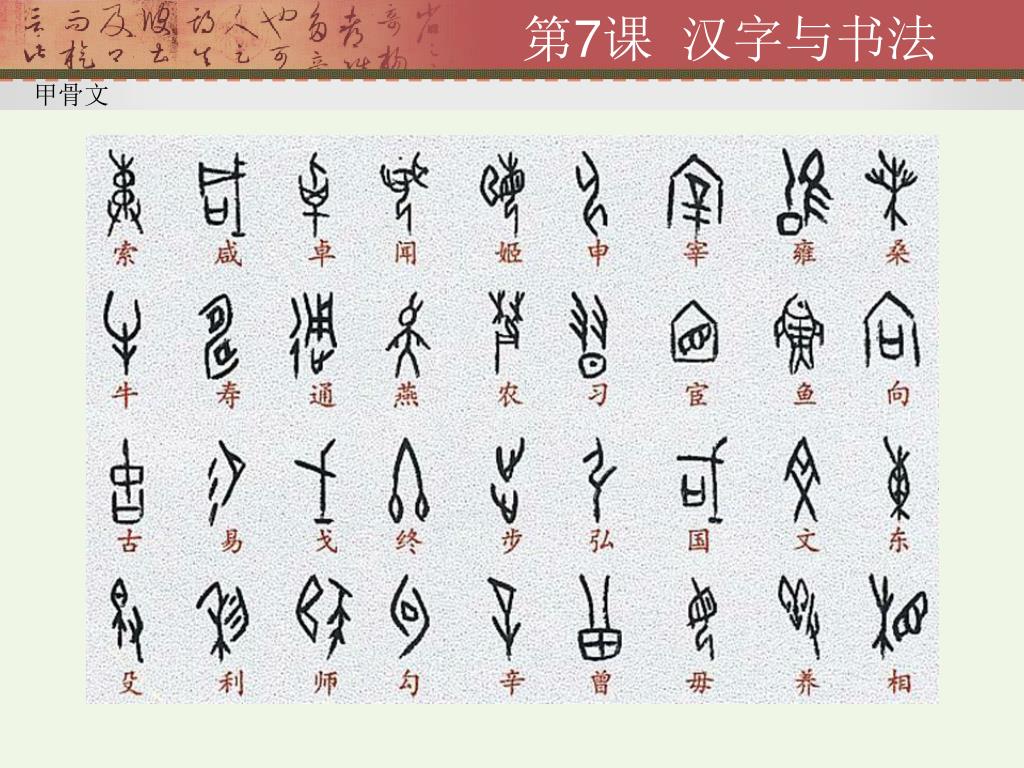 第7课 汉字与书法
甲骨文
索 咸 卓 闻 姬 申 宰 雍 桑
牛 寿 通 燕 农 习 宦 鱼 向
古 易 戈 终 步 弘 国 文 东
殳 利 师 勾 辛 曾 毋 养 相